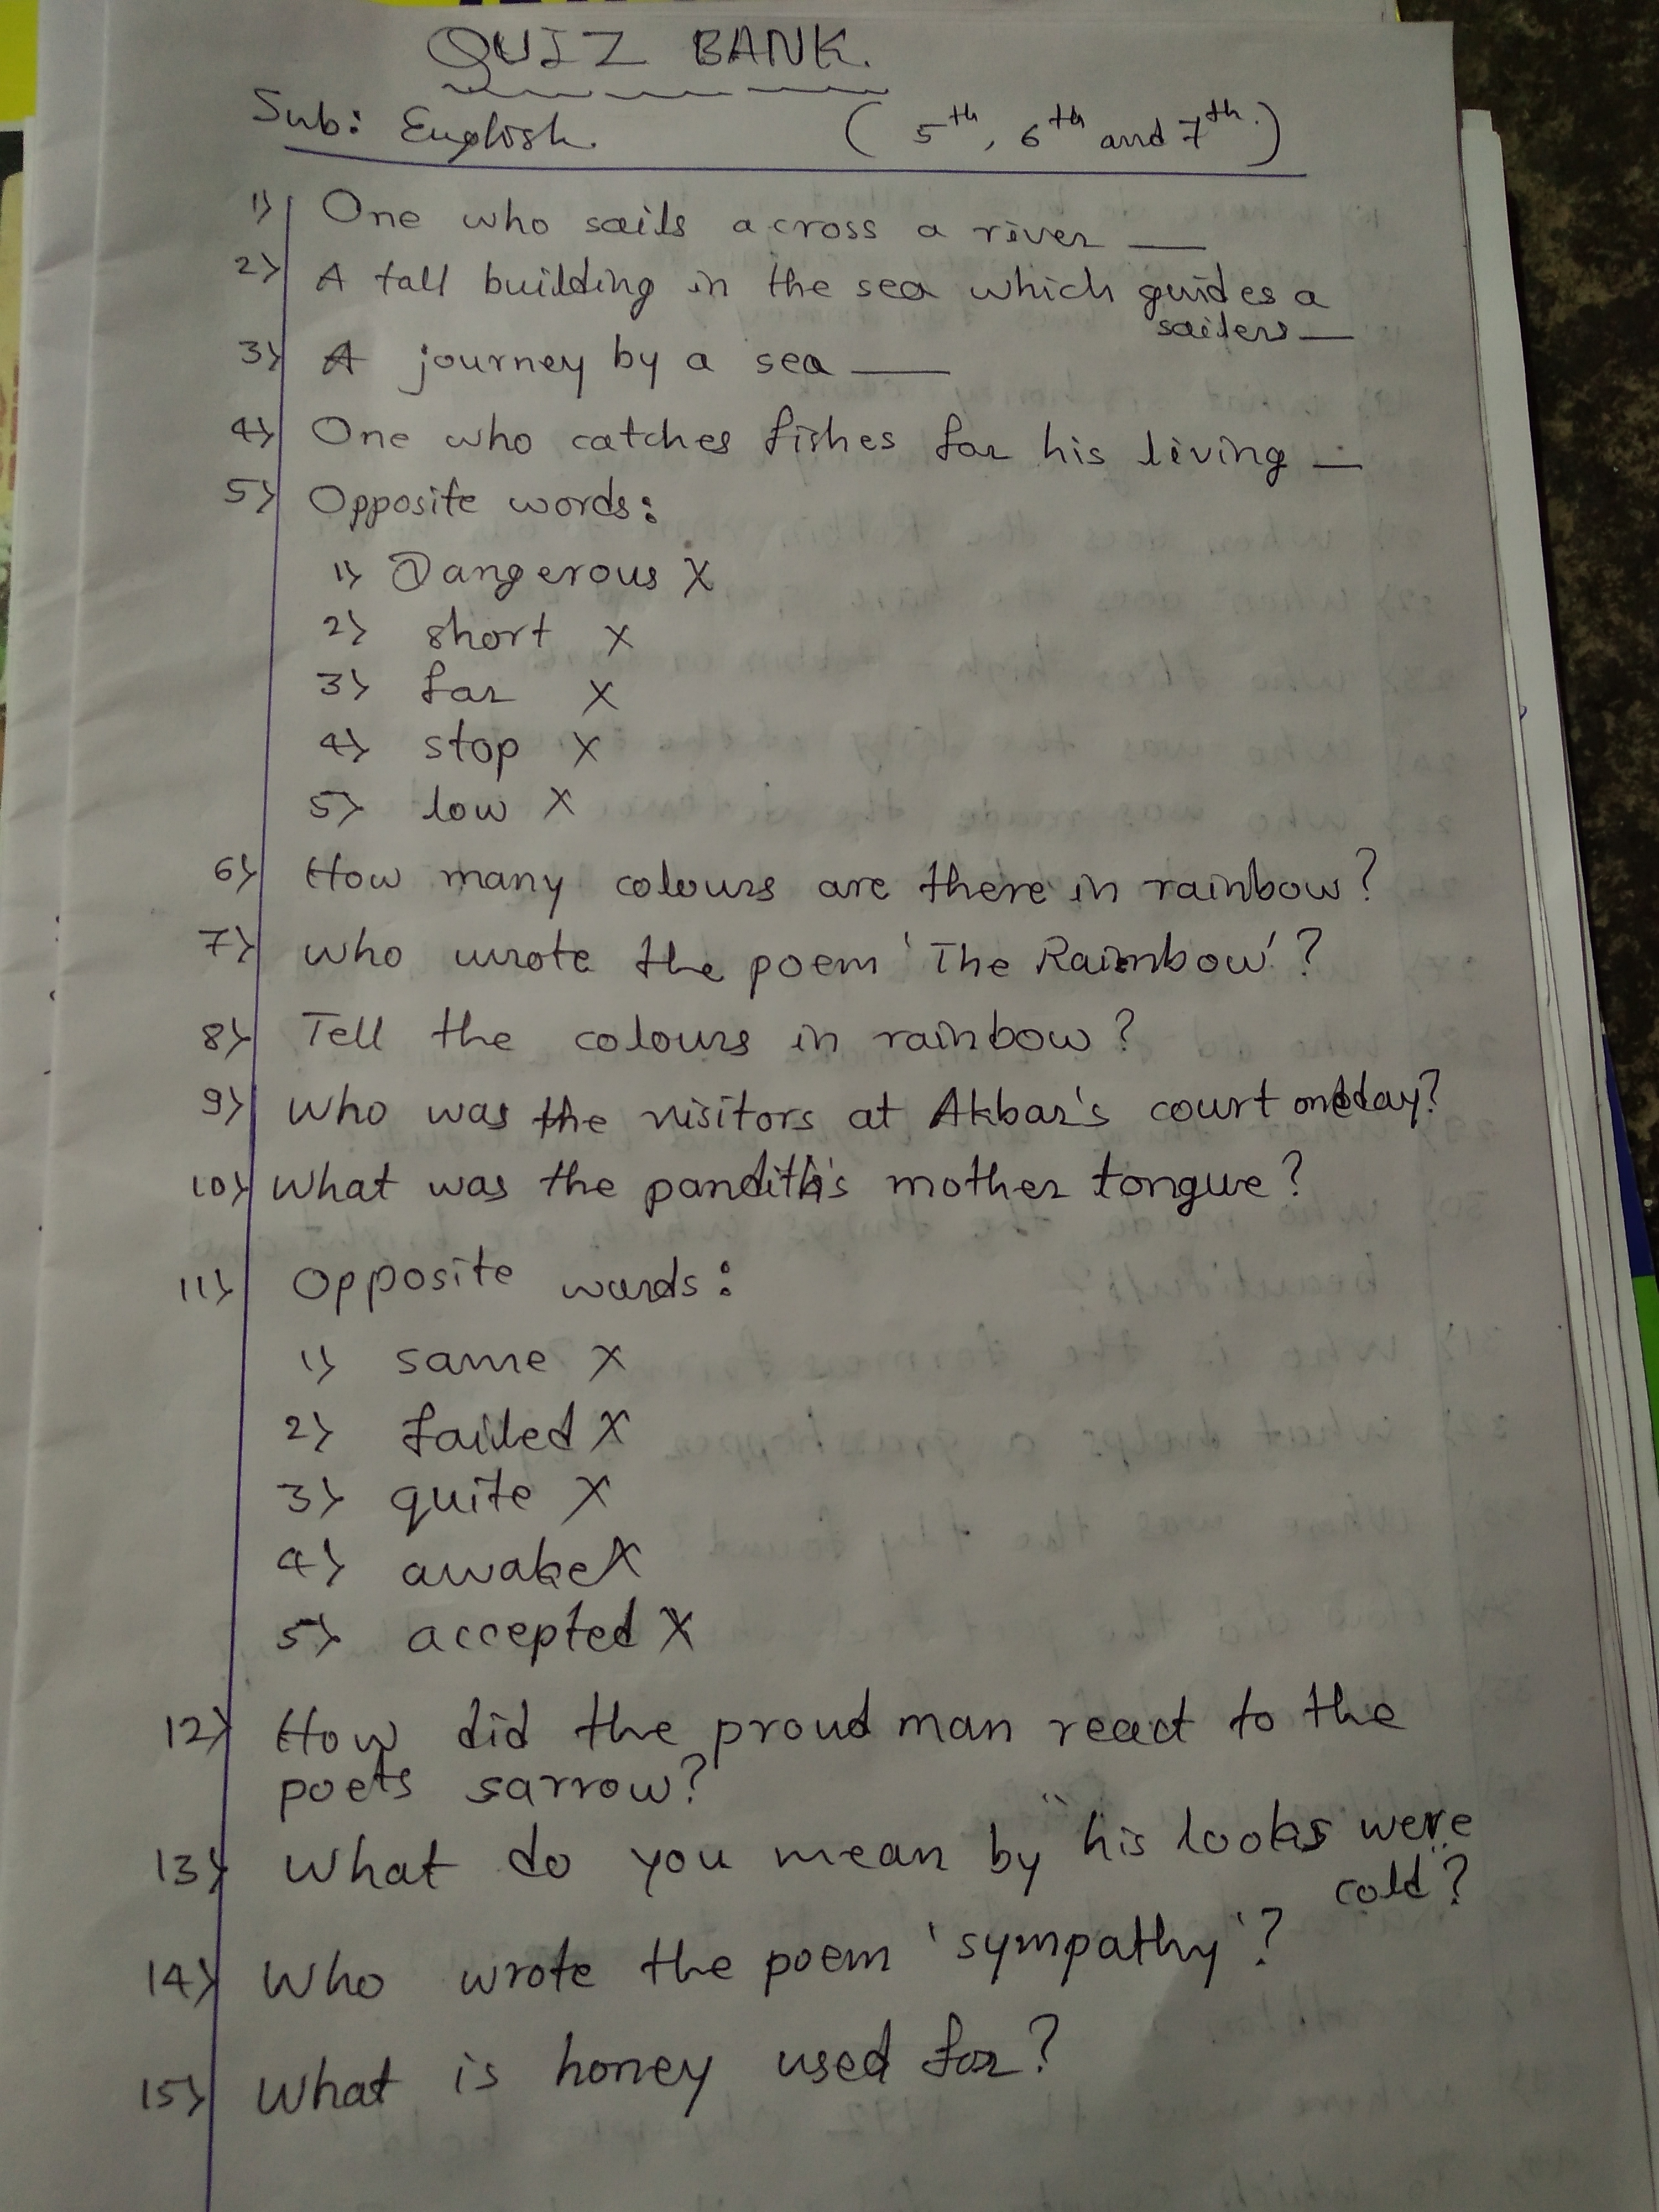 QUIZ BANK.
Sub: English. (5th, 6th and 7th.)
1) One who sails across a river __
2) A tall building in the sea which guides a
sailers __
3) A journey by a sea __
4) One who catches fishes for his living __
5) Opposite words:
1) Dangerous X
2) short X
3) far X
4) stop X
5) low X
6) How many colours are there in rainbow?
7) Who wrote the poem 'The Rainbow'?
8) Tell the colours in rainbow?
9) Who was the visitors at Akbar's court oneday?
10) What was the pandith's mother tongue?
11) Opposite words:
1) same X
2) failed X
3) quite X
4) awake X
5) accepted X
12) How did the proud man react to the
poets sarrow?
13) What do you mean by "his looks were
cold?
14) Who wrote the poem 'sympathy'?
15) What is honey used for?